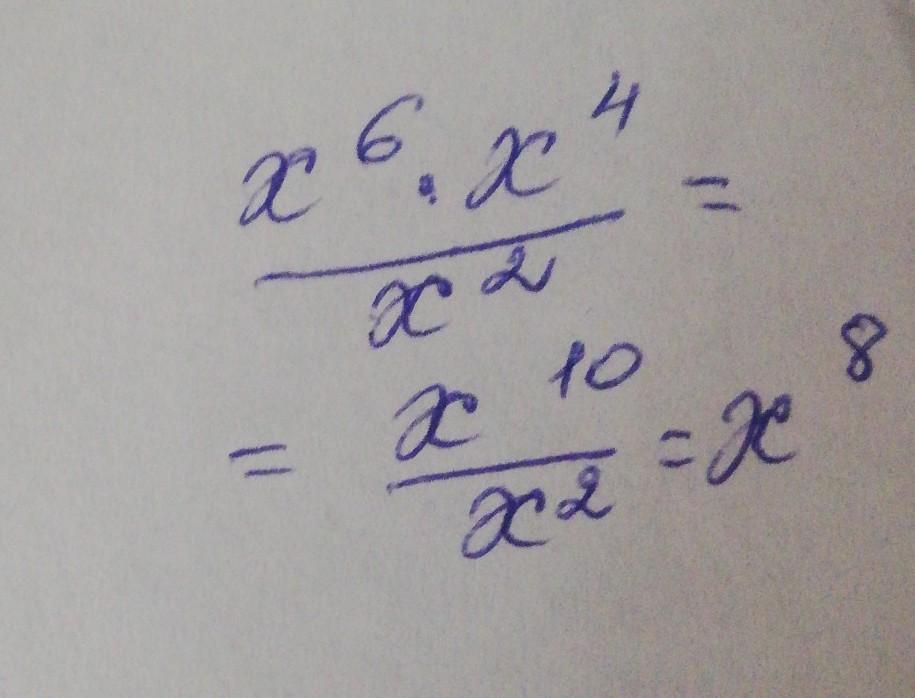 x⁶ · x⁴
─── =
x²
= x¹⁰/x² = x⁸